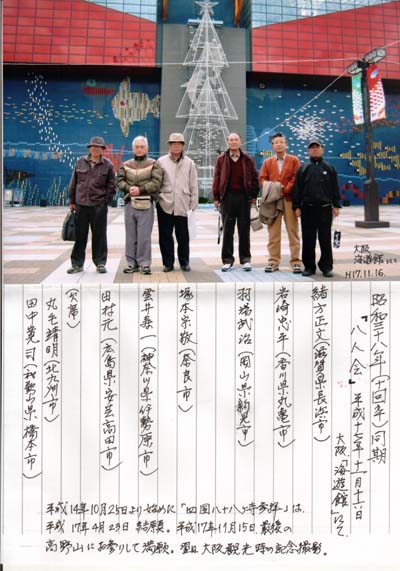 大阪
海遊館にて
H17.11.16.
昭和三八年(十回平)同期
「八人会」平成十七年十一月十六日
大阪「海遊館」にて
緒方正文(滋賀県長浜市)
岩崎忠平(香川県丸亀市)
羽場武治(岡山県新見市)
塚本宗敬(奈良市)
雲井泰一(神奈川県伊勢原市)
田村元(広島県安芸高田市)
(欠席)
丸毛靖明(北九州市)
田中寛司(和歌山県橋本市)
平成14年10月25日より始めた「四国八十八ヶ寺参拝」は、
平成17年4月29日結願。平成17年11月15日最後の
高野山にお参りして満願。翌日大阪観光時の記念撮影。